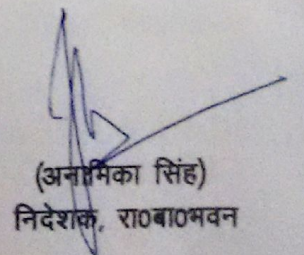 (अनामिका सिंह)
निदेशक, रा0बा0भवन